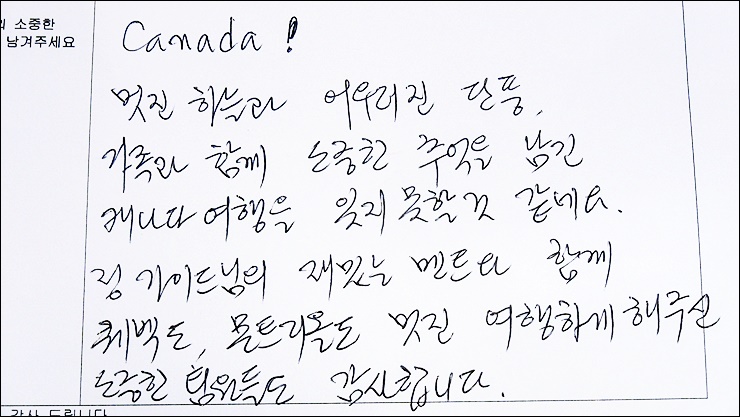 소중한
남겨주세요
Canada !
멋진 하늘과 어우러진 단풍,
가족과 함께 소중한 추억을 남긴
캐나다 여행을 잊지 못할것 같네요.
정 가이드님의 재밌는 멘트와 함께
퀘벡도, 몬트리올도 멋진 여행하게 해주신
소중한 팀원들도 감사합니다.
감사 드립니다